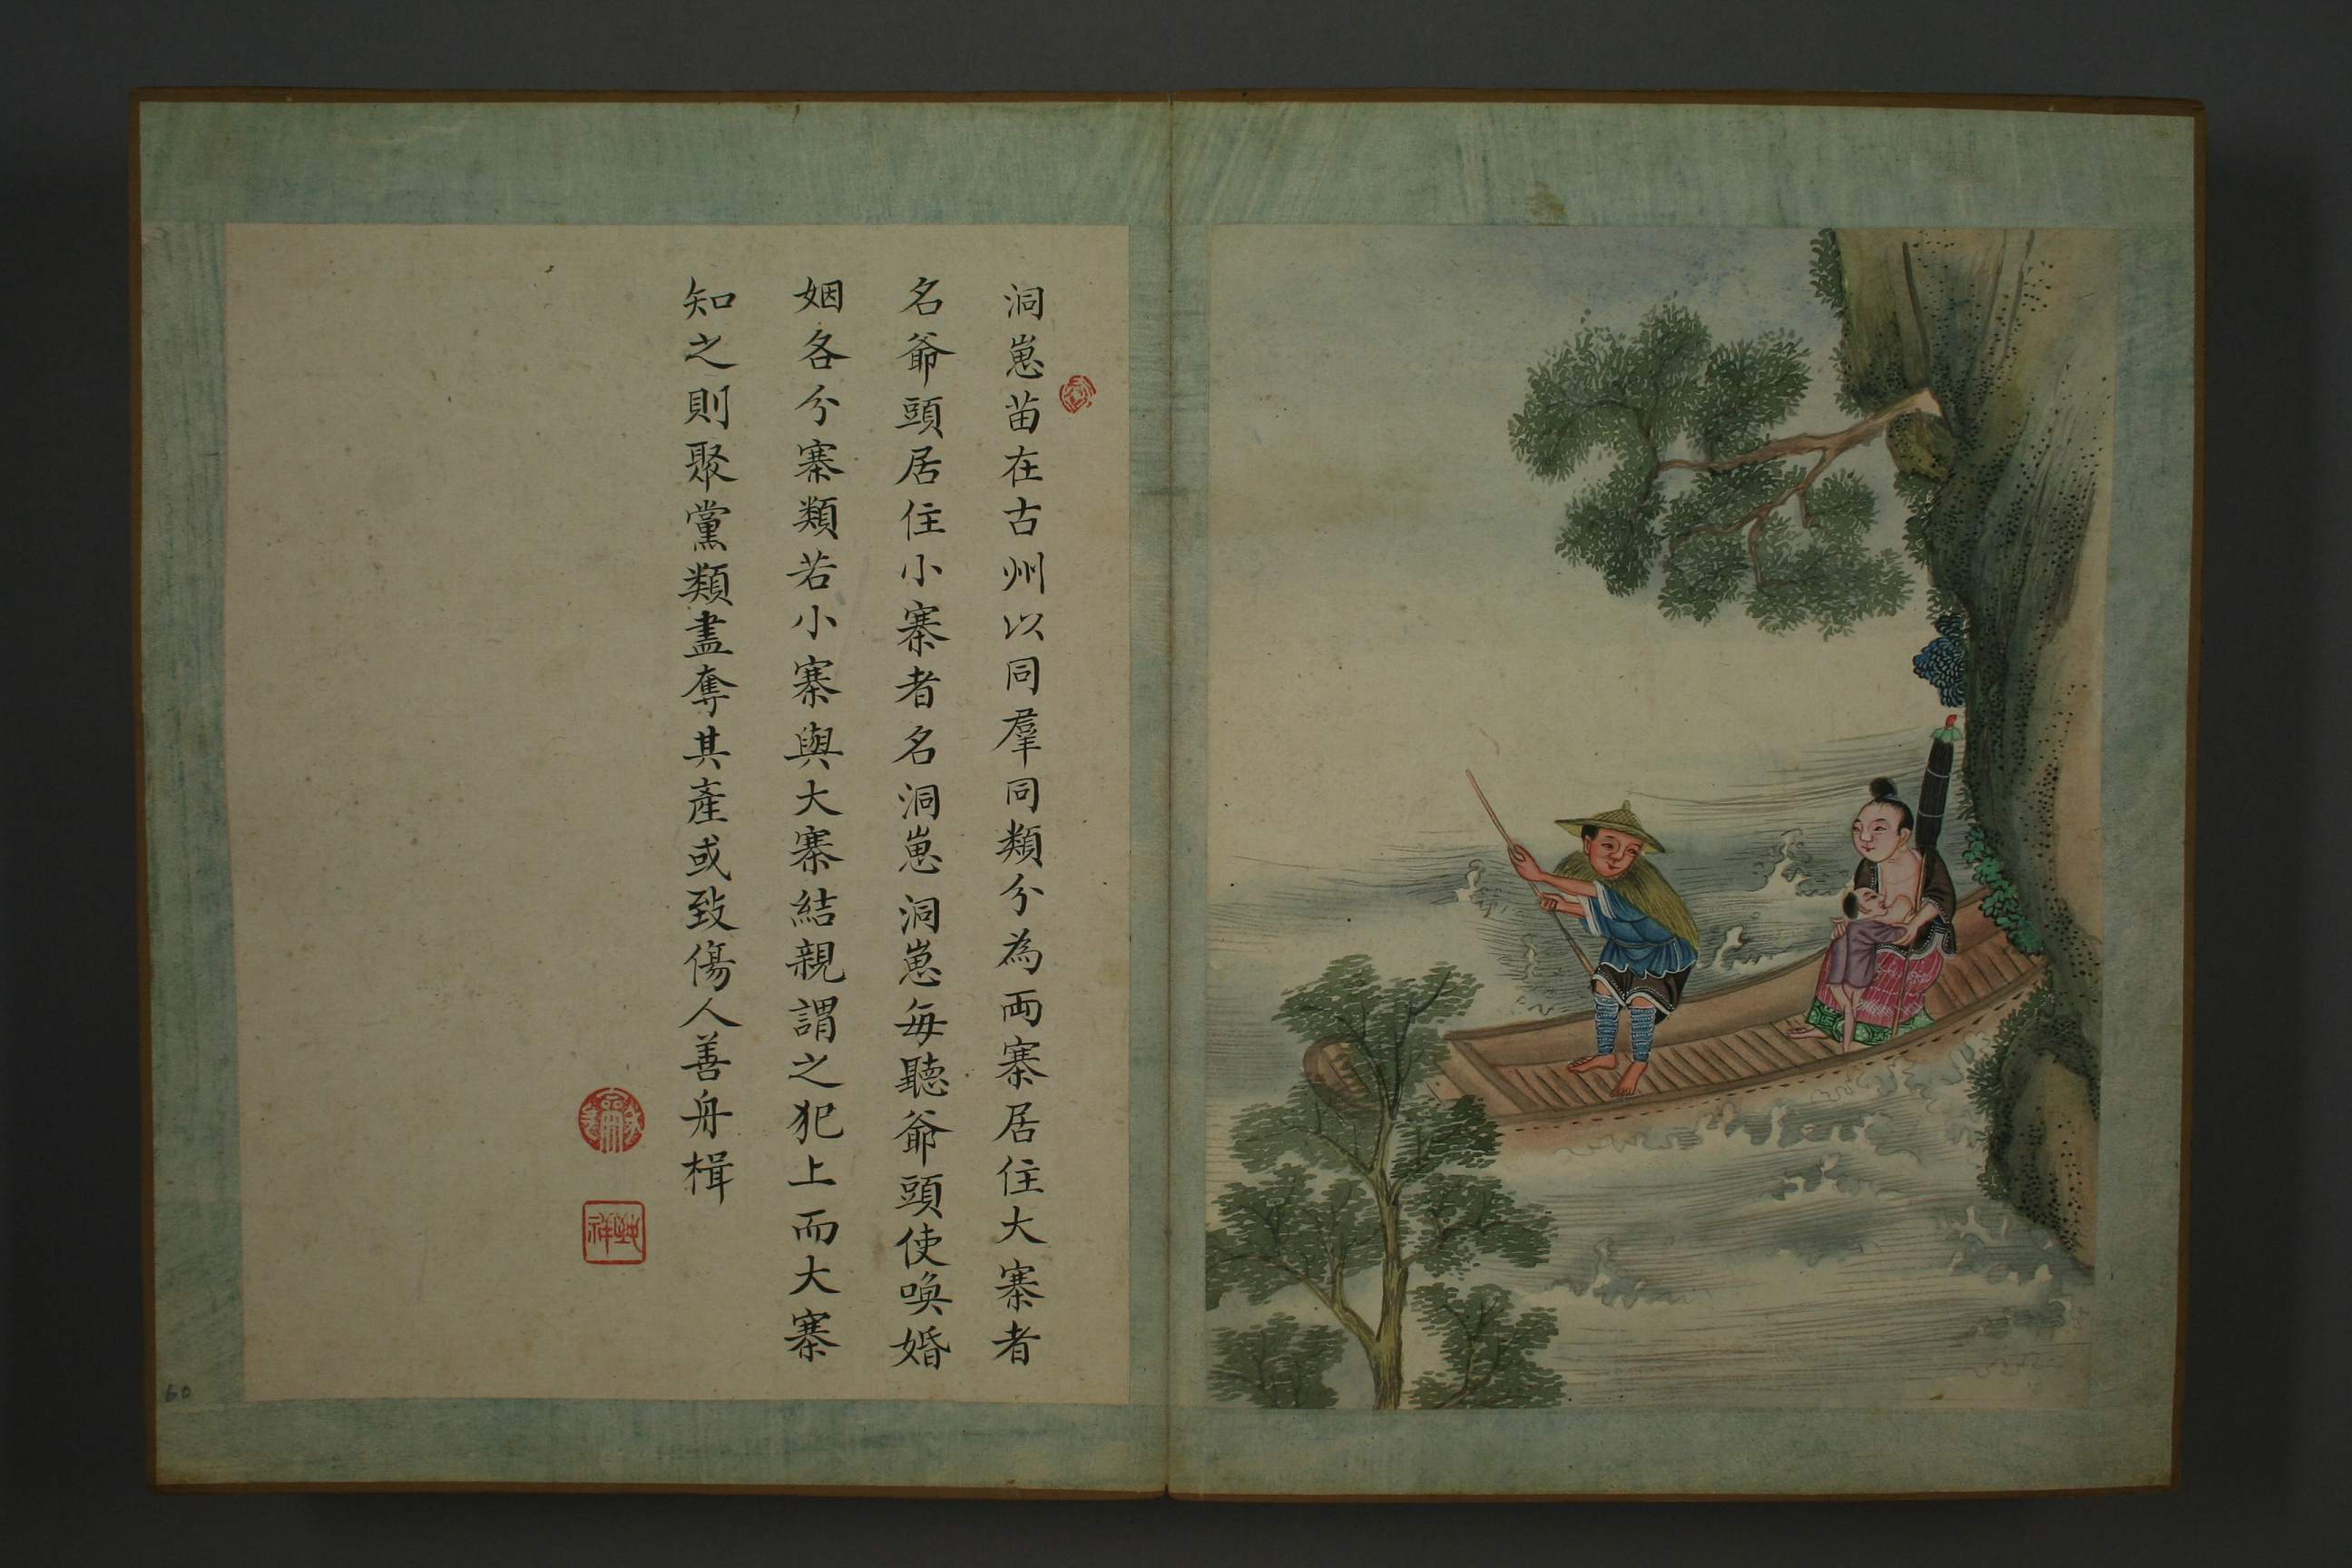 洞崽苗在古州以同羣同類分為両寨居住大寨者
名爺頭居住小寨者名洞崽洞崽每聽爺頭使喚婚
姻各分寨類若小寨與大寨結親謂之犯上而大寨
知之則聚黨類盡奪其產或致傷人善舟楫
60